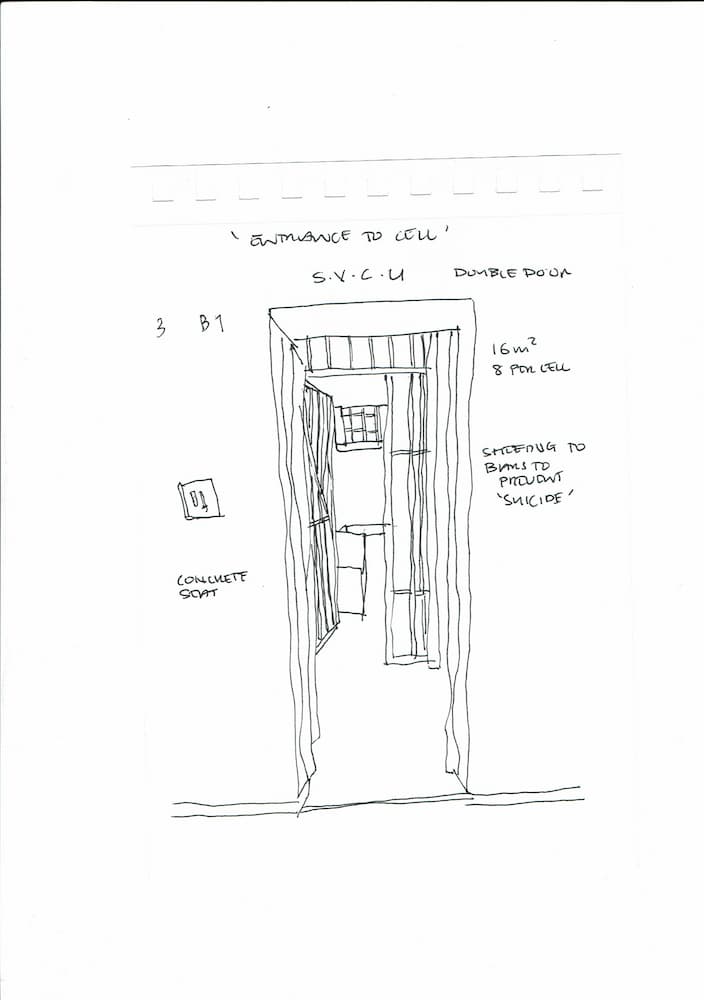 'ENTRANCE TO CELL'
S.V.C.U
DOUBLE DOOR
3 B1
16m²
8 PER CELL
SHEETING TO
BARS TO
PREVENT
'SUICIDE'
CONCRETE
SEAT